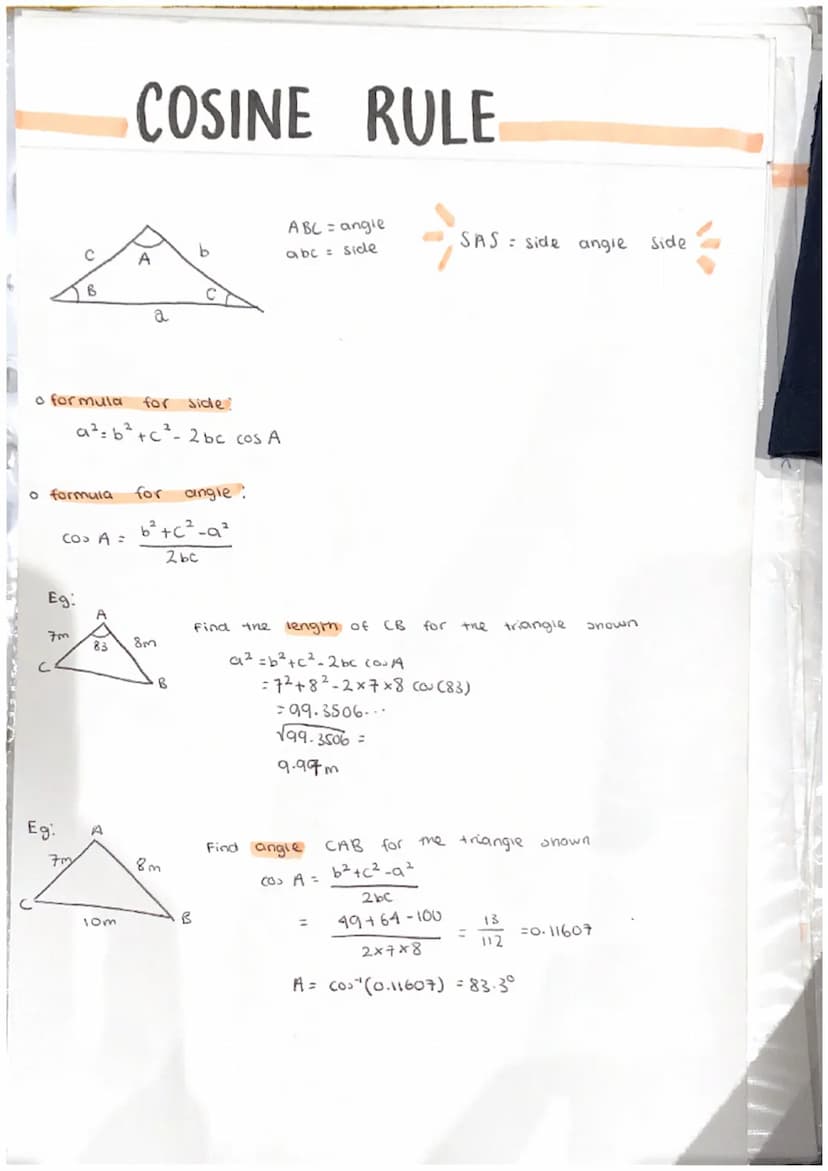 COSINE RULE
ABC = angle
abc = side
SAS : side angle side
c
A
b
B
C
a
formula for side:
a² = b² + c² - 2bc cos A
formula for angle:
cos A = b² + c² - a² / 2bc
Eg:
A
7m
83
8m
C
B
Find the length of CB for the triangle shown
a² = b² + c² - 2bc cos A
= 7² + 8² - 2 × 7 × 8 cos (83)
= 99.3506...
√99.3506 =
9.97m
Eg:
A
7m
8m
C
B
10m
Find angle CAB for the triangle shown
cos A = b² + c² - a² / 2bc
= 49 + 64 - 100 / 2 × 7 × 8 = 13 / 112 = 0.11607
A = cos⁻¹(0.11607) = 83.3°